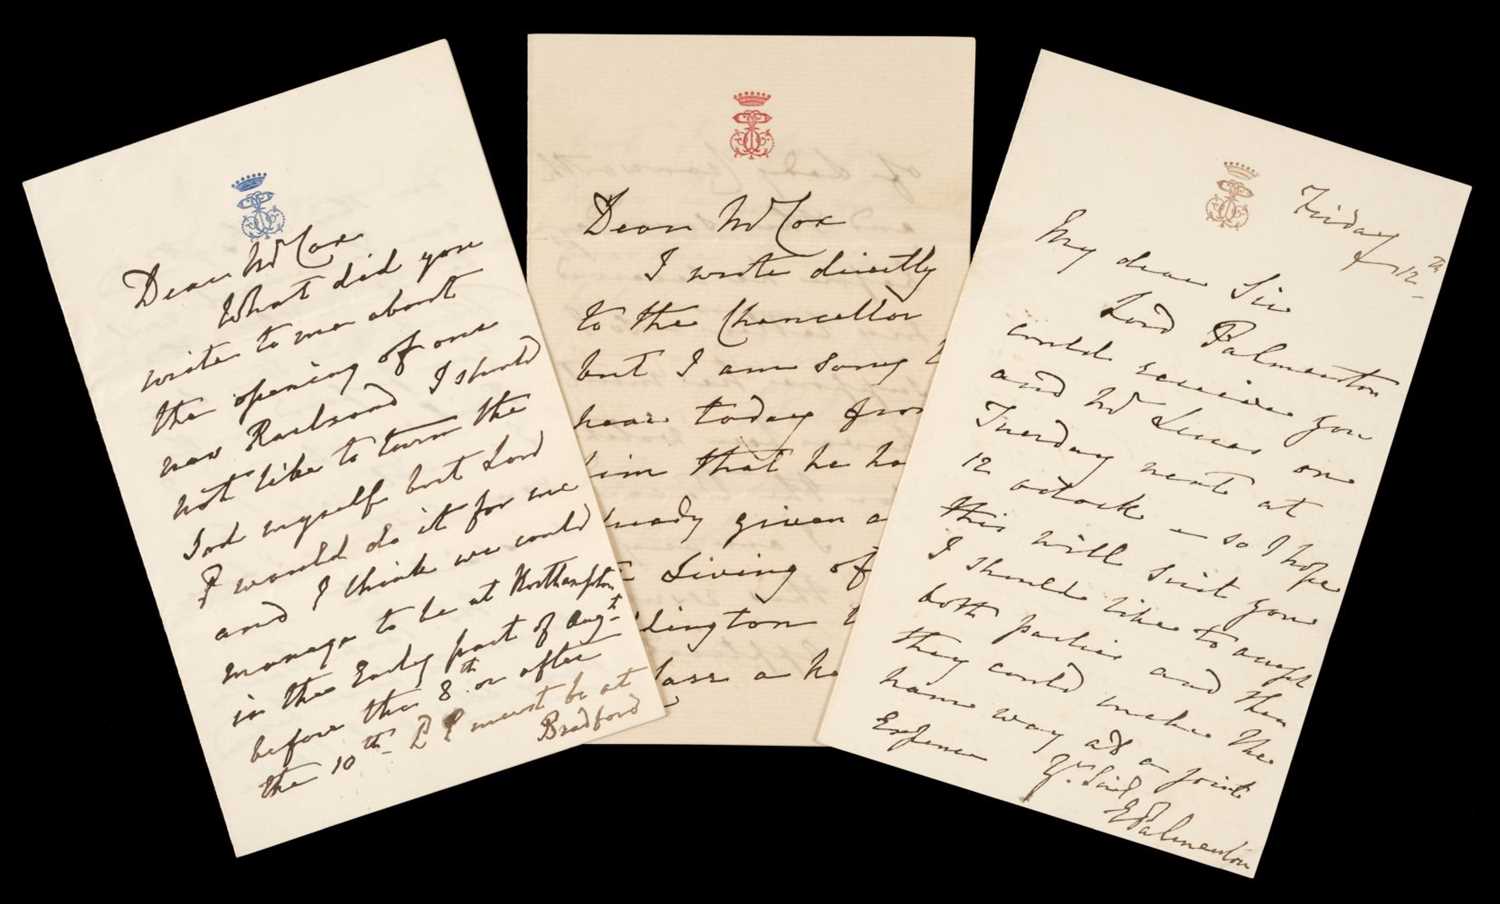 Dear Mr Cox
What did you
write to me about
the opening of one
new Railroad I should
not like to turn the
Sod myself but Lord
P would do it for me
and I think we could
manage to be at Northampton
in the Early part of Augt
before the 8th or after
the 10th Ld P must be at
Bradford
Dear Mr Cox
I wrote directly
to the Chancellor
but I am sorry
hear today from
him that he ha
lready given a
Living of
lington
lass a
Friday
12th
My dear Sir
Lord Palmerston
could receive you
and Mr Lucas on
Tuesday next at
12 o'clock so I hope
this will suit you
I should like to accept
both parties and then
they could make the
same way at a joint
Expense
Yrs Sinc
E Palmerston